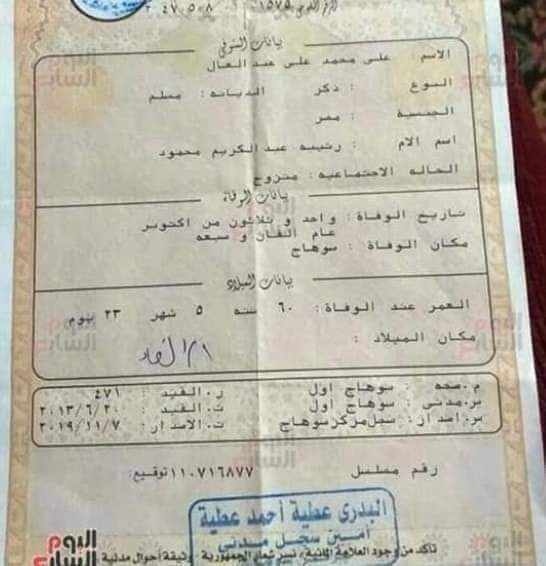 بيانات المتوفى
الاسم : على محمد على عبد العال
النوع : ذكر الديانه : مسلم
الجنسية : مصر
اسم الام : رئيسه عبد الكريم محمود
الحاله الاجتماعيه : متزوج
بيانات الوفاة
تاريخ الوفاة : واحد و ثلاثون من اكتوبر
عام الفان و سبعه
مكان الوفاة : سوهاج
بيانات الميلاد
العمر عند الوفاة : ٦٠ سنه ٥ شهر ٢٣ يوم
مكان الميلاد :
م.صحه : سوهاج اول ر.القيد : ٤٧١
س.مدنى : سوهاج اول ت.القيد : ٢٠١٣/٦/٢٠
س.اصدار : سجل مركز سوهاج ت.الاصدار : ٢٠١٩/١١/٧
رقم مسلسل ١١٠٧١٦٨٧٧ توقيع :
البدرى عطية أحمد عطية
أمين سجل مدنى
تأكد من وجود العلامة المائية ، نسر شعار الجمهورية - وثيقة أحوال مدنية
اليوم السابع